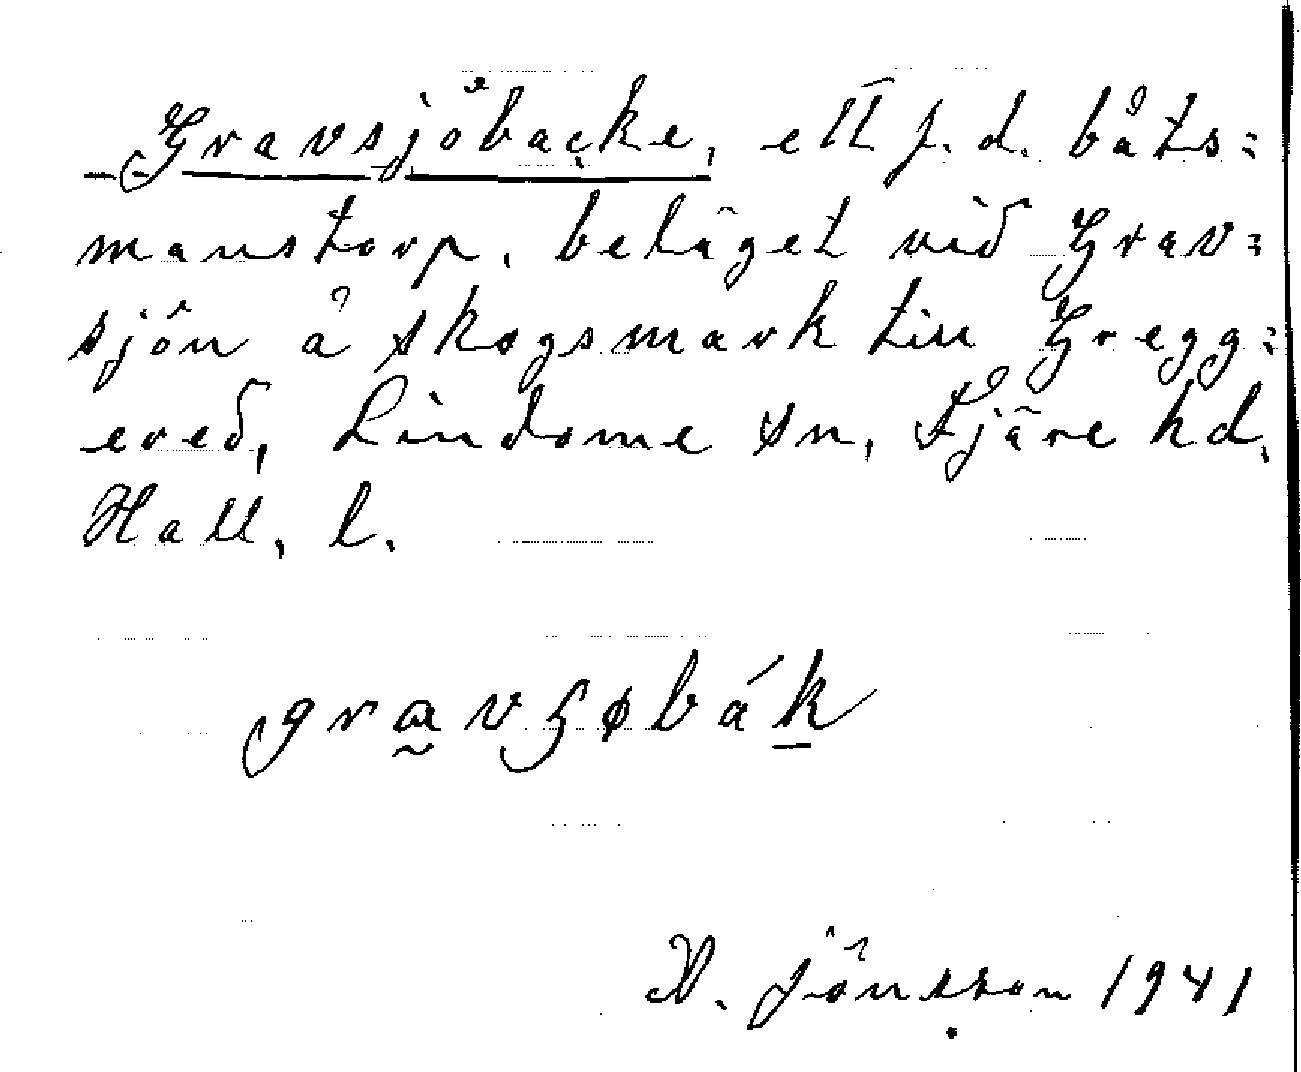 Gravsjöbacke, ett f. d. båts=
manstorp, beläget vid Grav=
sjön å skogsmark till Gregg=
ered, Lindome sn, Fjäre hd,
Hall. l.
gravʂøbák
W. Jönsson 1941